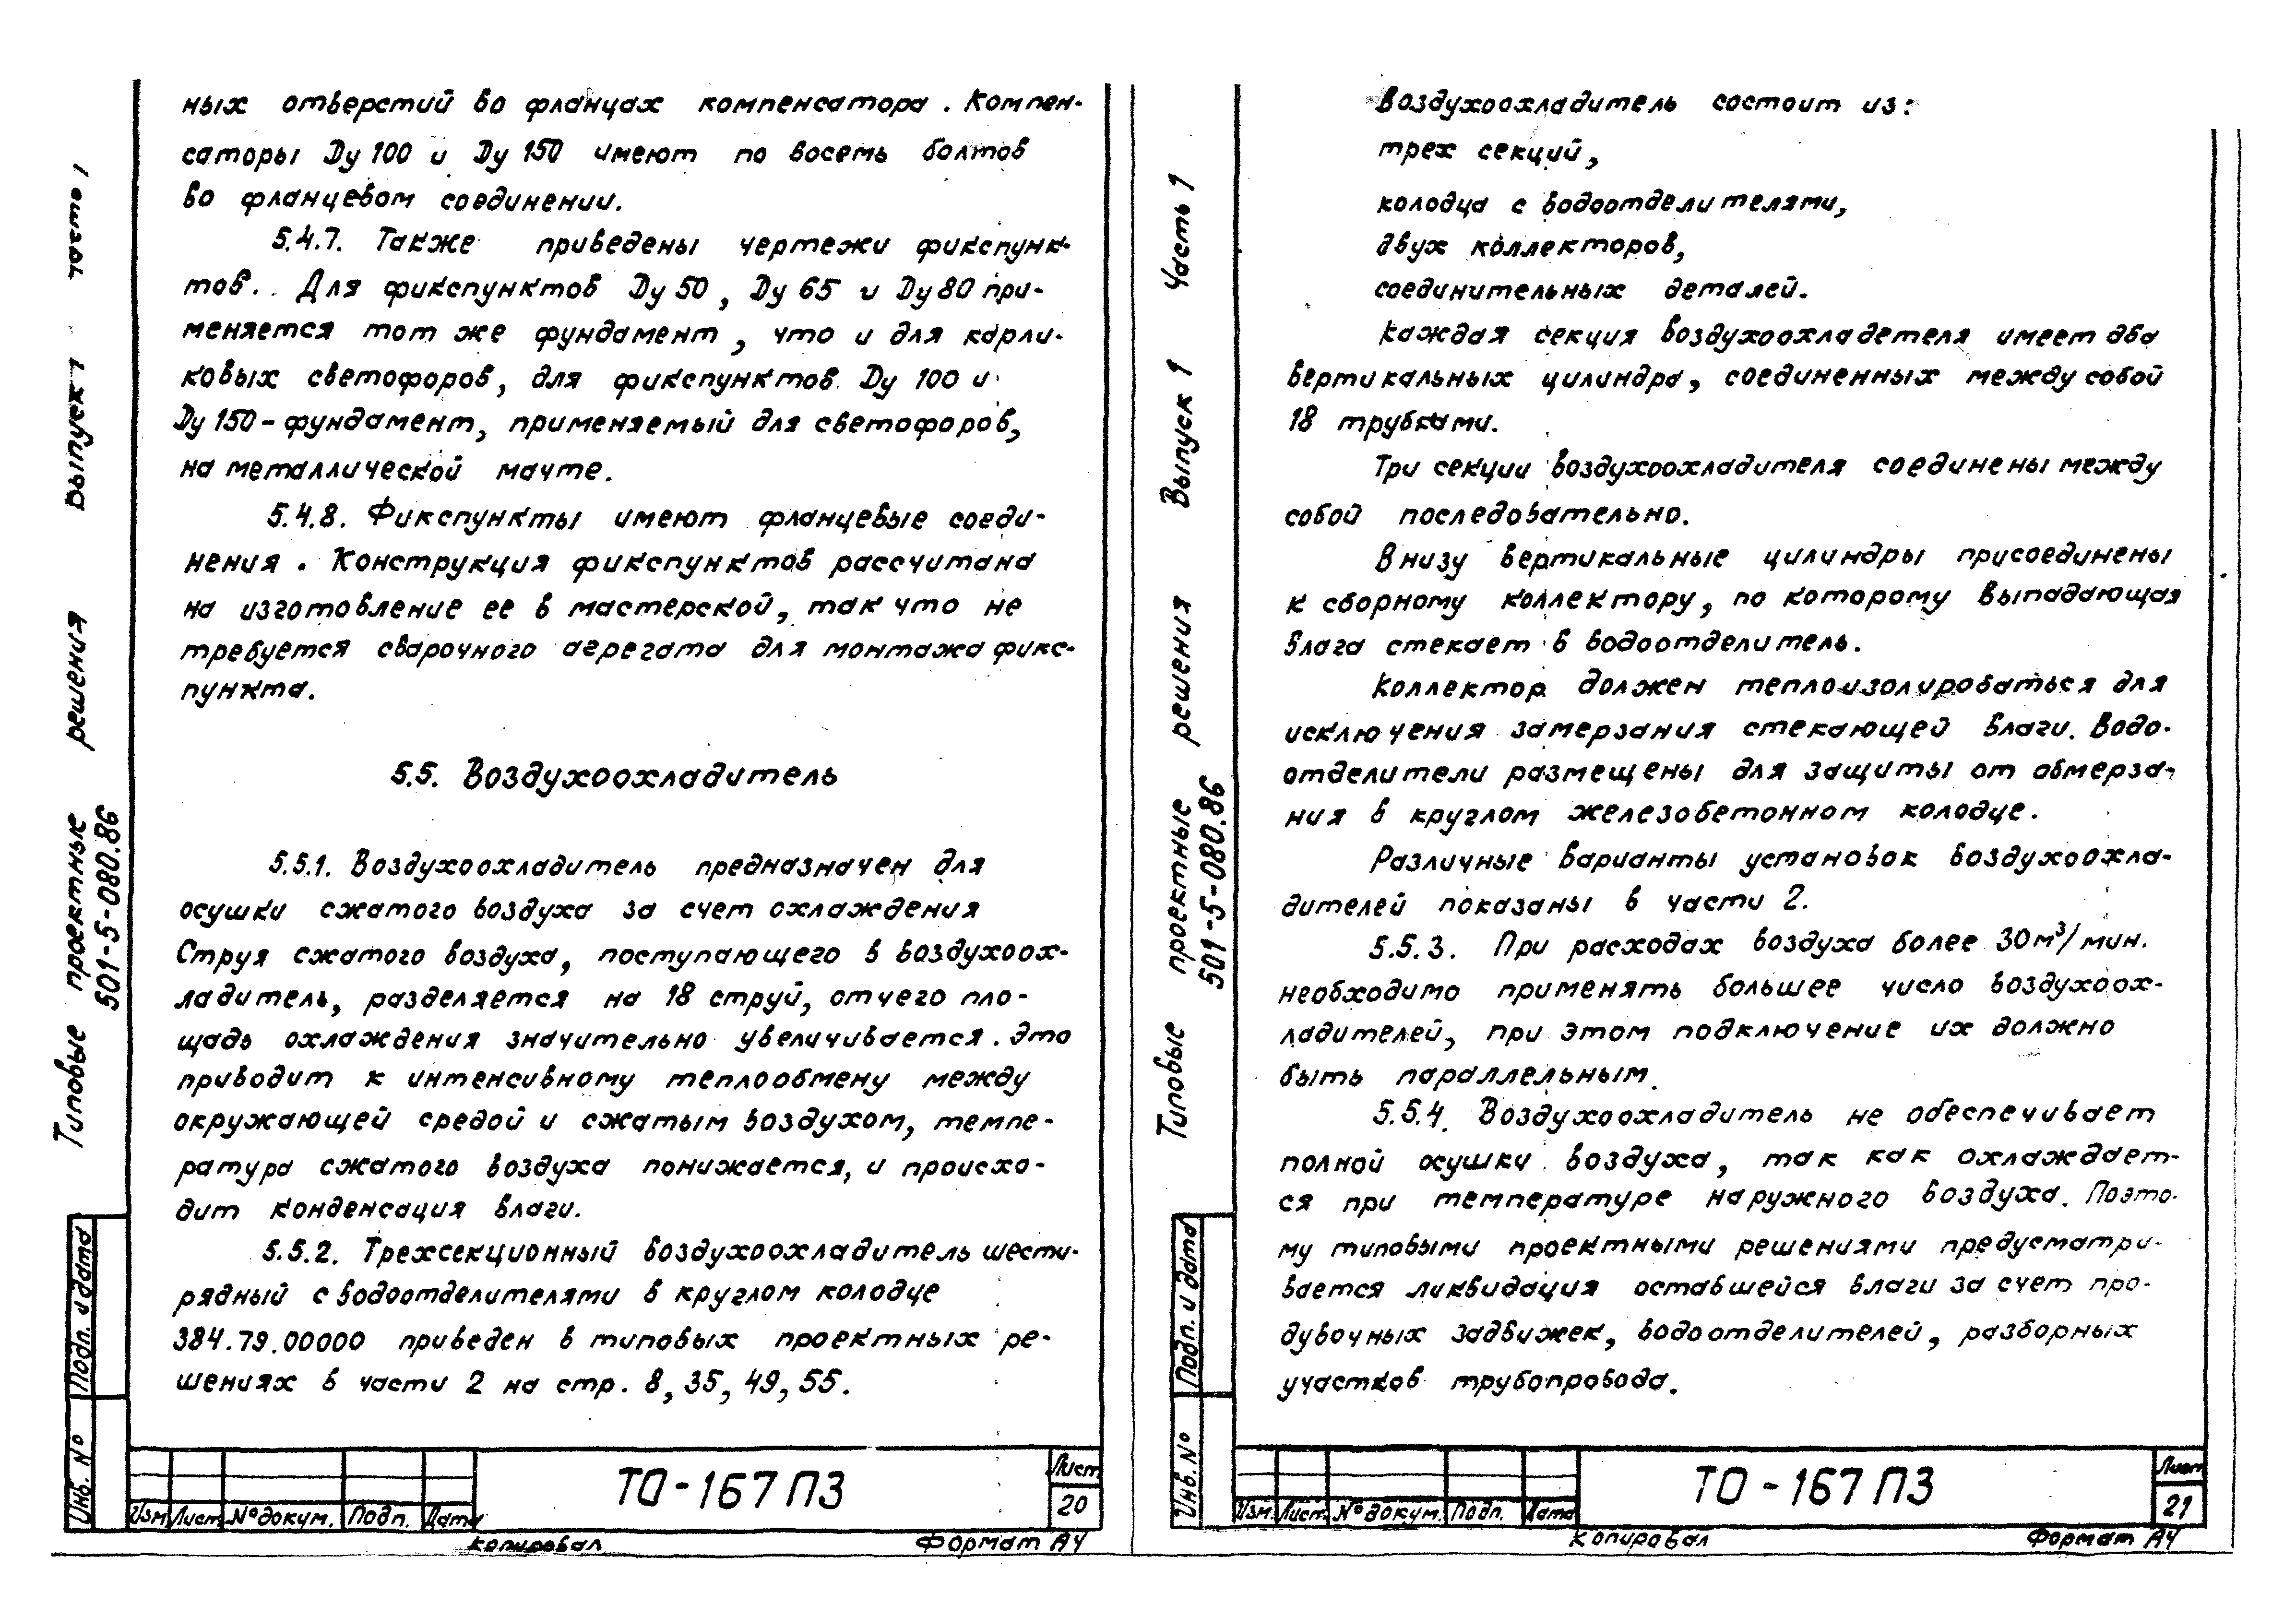 ных отверстий во фланцах компенсатора. Компен-
саторы Ду 100 и Ду 150 имеют по восемь болтов
во фланцевом соединении.
5.4.7. Также приведены чертежи фикспунк-
тов. Для фикспунктов Ду 50, Ду 65 и Ду 80 при-
меняется тот же фундамент, что и для карли-
ковых светофоров, для фикспунктов Ду 100 и
Ду 150 - фундамент, применяемый для светофоров,
на металлической мачте.
5.4.8. Фикспункты имеют фланцевые соеди-
нения. Конструкция фикспунктов рассчитана
на изготовление ее в мастерской, так что не
требуется сварочного агрегата для монтажа фикс-
пункта.
5.5. Воздухоохладитель
5.5.1. Воздухоохладитель предназначен для
осушки сжатого воздуха за счет охлаждения
Струя сжатого воздуха, поступающего в воздухоох-
ладитель, разделяется на 18 струй, отчего пло-
щадь охлаждения значительно увеличивается. Это
приводит к интенсивному теплообмену между
окружающей средой и сжатым воздухом, темпе-
ратура сжатого воздуха понижается, и происхо-
дит конденсация влаги.
5.5.2. Трехсекционный воздухоохладитель шести-
рядный с водоотделителями в круглом колодце
384.79.00000 приведен в типовых проектных ре-
шениях в части 2 на стр. 8, 35, 49, 55.
Типовые проектные решения Выпуск 1 часть 1
501-5-080.86
Подп. и дата
Инв. №
Изм Лист № докум. Подп. Дата
ТО-167 ПЗ
Лист
20
Копировал
Формат А4
Воздухоохладитель состоит из:
трех секций,
колодца с водоотделителями,
двух коллекторов,
соединительных деталей.
Каждая секция воздухоохладетеля имеет два
вертикальных цилиндра, соединенных между собой
18 трубками.
Три секции воздухоохладителя соединены между
собой последовательно.
Внизу вертикальные цилиндры присоединены
к сборному коллектору, по которому выпадающая
влага стекает в водоотделитель.
Коллектор должен теплоизолироваться для
исключения замерзания стекающей влаги. Водо-
отделители размещены для защиты от обмерза-
ния в круглом железобетонном колодце.
Различные варианты установок воздухоохла-
дителей показаны в части 2.
5.5.3. При расходах воздуха более 30 м³/мин.
необходимо применять большее число воздухоох-
ладителей, при этом подключение их должно
быть параллельным.
5.5.4. Воздухоохладитель не обеспечивает
полной осушки воздуха, так как охлаждает-
ся при температуре наружного воздуха. Поэто-
му типовыми проектными решениями предусматри-
вается ликвидация оставшейся влаги за счет про-
дувочных задвижек, водоотделителей, разборных
участков трубопровода.
Типовые проектные решения Выпуск 1 Часть 1
501-5-080.86
Подп. и дата
Инв. №
Изм. Лист № докум. Подп. Дата
ТО-167 ПЗ
Лист
21
Копировал
Формат А4